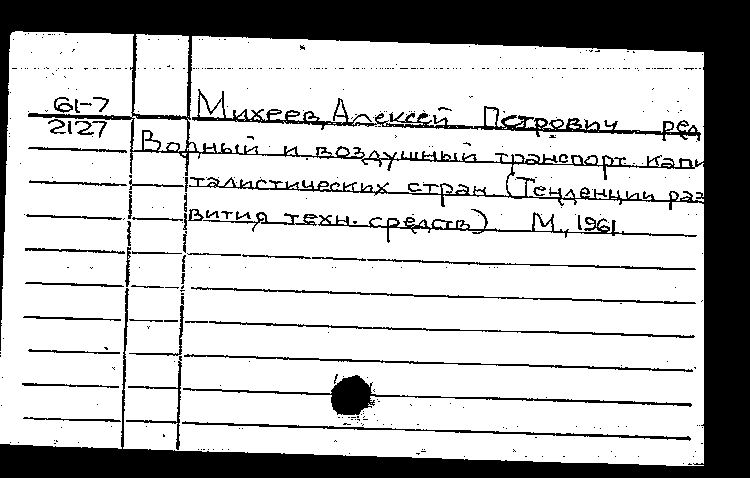 61-7
2127
Михеев, Алексей Петрович ред
Водный и воздушный транспорт капи
талистических стран (Тенденции раз
вития техн. средств) М., 1961.